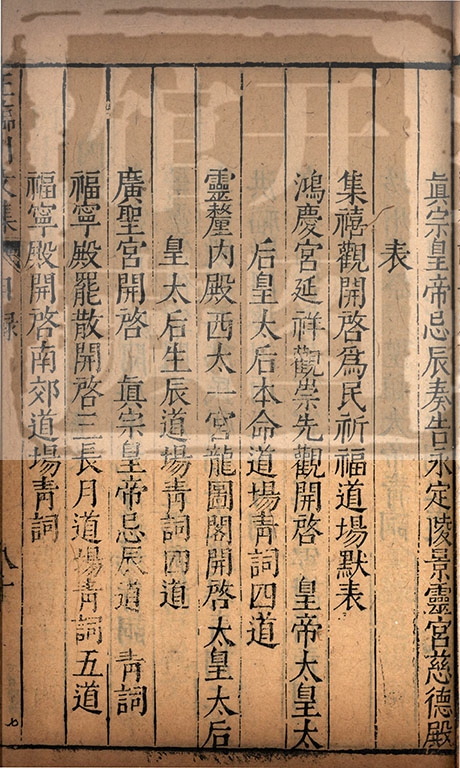 眞宗皇帝忌辰奏告永定陵景靈宮慈德殿
表
集禧觀開啓爲民祈福道場默表
鴻慶宮延祥觀崇先觀開啓 皇帝太皇太
后皇太后本命道場靑詞四道
靈釐内殿西太一宮龍圖閣開啓太皇太后
皇太后生辰道場靑詞四道
廣聖宮開啓 眞宗皇帝忌辰道 靑詞
福寧殿罷散開啓三長月道場靑詞五道
福寧殿開啓南郊道場靑詞
王臨川文集 目録